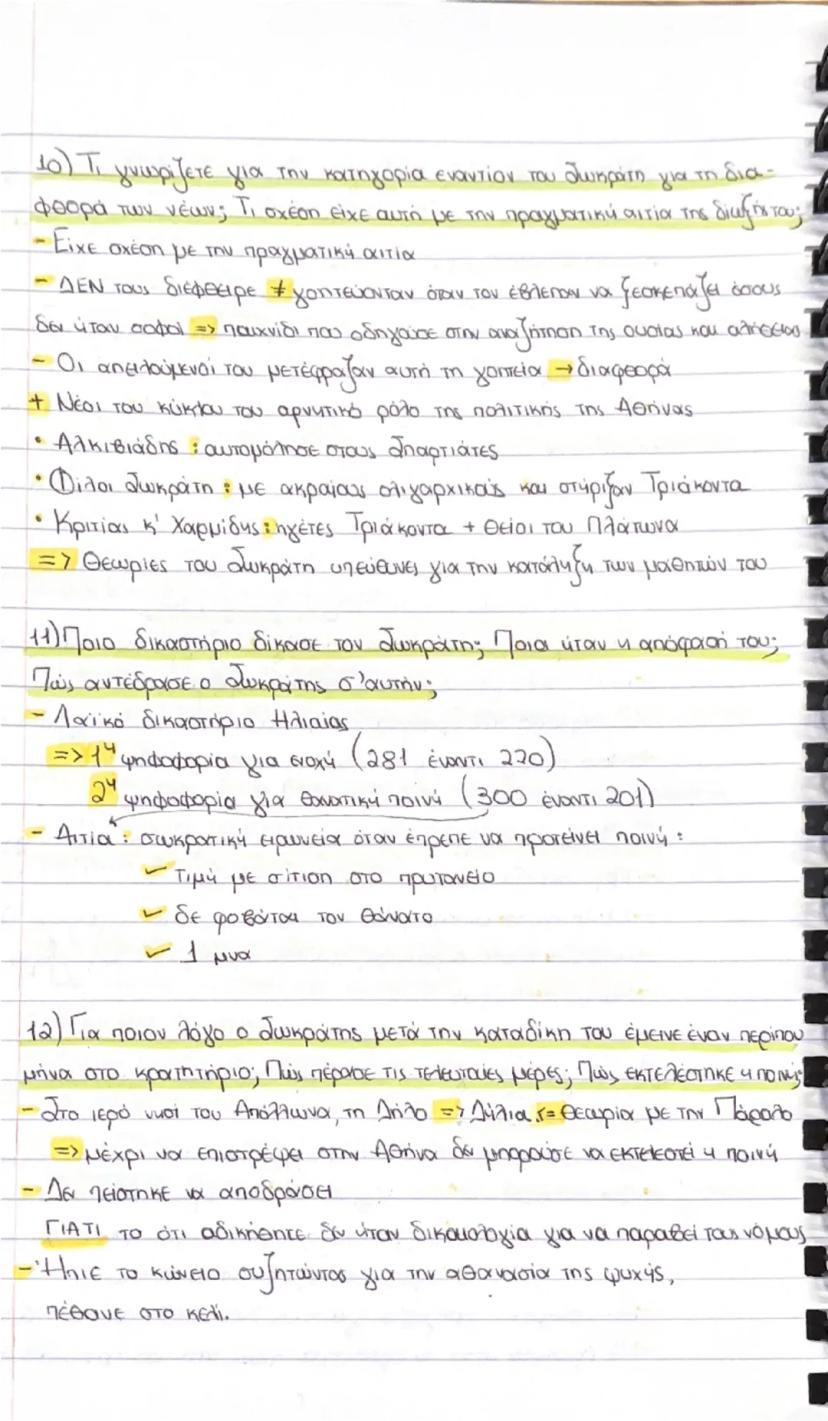 10) Τι γνωρίζετε για την κατηγορία εναντίον του Σωκράτη για τη δια-
φθορά των νέων; Τι σχέση είχε αυτή με την πραγματική αιτία της δίωξής του;
- Είχε σχέση με την πραγματική αιτία
- ΔΕΝ τους διέφθειρε ≠ γοητεύονταν όταν τον έβλεπαν να ξεσκεπάζει όσους
δεν ήταν σοφοί => παιχνίδι που οδηγούσε στην αναζήτηση της ουσίας και αλήθειας
- Οι απειλούμενοί του μετέφραζαν αυτή τη γοητεία → διαφθορά
+ Νέοι του κύκλου του αρνητικό ρόλο της πολιτικής της Αθήνας
• Αλκιβιάδης : αυτομόλησε στους Σπαρτιάτες
• Φίλοι Σωκράτη : με ακραίους ολιγαρχικούς και στήριξαν Τριάκοντα
• Κριτίας κ' Χαρμίδης : ηγέτες Τριάκοντα + θείοι του Πλάτωνα
=> Θεωρίες του Σωκράτη υπεύθυνες για την κατάληξη των μαθητών του
11) Ποιο δικαστήριο δίκασε τον Σωκράτη; Ποια ήταν η απόφασή του;
Πώς αντέδρασε ο Σωκράτης σ'αυτήν;
- Λαϊκό δικαστήριο Ηλιαίας
=> 1η ψηφοφορία για ενοχή (281 έναντι 220)
2η ψηφοφορία για θανατική ποινή (300 έναντι 201)
- Αιτία : σωκρατική ειρωνεία όταν έπρεπε να προτείνει ποινή :
✓ Τιμή με σίτιση στο πρυτανείο
✓ δε φοβάται τον θάνατο
✓ 1 μνα
12) Για ποιον λόγο ο Σωκράτης μετά την καταδίκη του έμεινε έναν περίπου
μήνα στο κρατητήριο; Πώς πέρασε τις τελευταίες μέρες; Πώς εκτελέστηκε η ποινή;
- Στο ιερό νησί του Απόλλωνα, τη Δήλο => Δήλια <= θεωρία με την Πάραλο
=> μέχρι να επιστρέψει στην Αθήνα δεν μπορούσε να εκτελεστεί η ποινή
- Δεν πείστηκε να αποδράσει
ΓΙΑΤΙ το ότι αδικήθηκε δεν ήταν δικαιολογία για να παραβεί τους νόμους
- Ήπιε το κώνειο συζητώντας για την αθανασία της ψυχής,
πέθανε στο κελί.